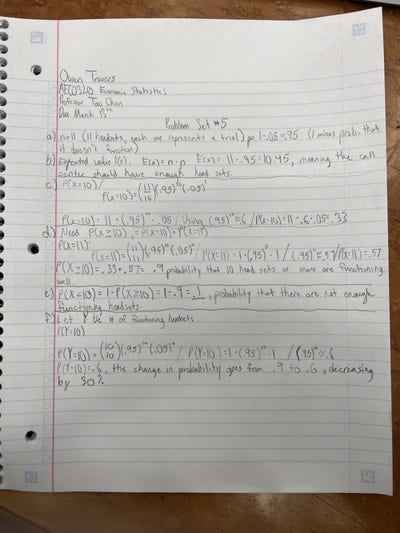 Owen Travers
AECO320 Economic Statistics
Professor Tao Chen
Due March 13th
Problem Set #5
a) n=11 (11 headsets, each one represents a trial) p= 1-.05=.95 (1 minus prob. that
it doesn't function)
b) Expected value E(x). E(x)=n·p E(x)= 11·.95=10.45, meaning the call
center should have enough head sets.
c) P(X=10)/
P(X=10)=(11 10)(.95)¹⁰(.05)¹
P(X=10)=11·(.95)¹⁰·.05/ Using (.95)¹⁰≈.6/P(X=10)=11·.6·.05=.33
d) Need P(X≥10)=P(X=10)+P(X=11)
P(X=11):
P(X=11)=(11 11)(.95)¹¹(.05)⁰/P(X=11)=1·(.95)¹¹·1/(.95)¹¹≈.57/P(X=11)=.57
P(X≥10)=.33+.57=.9 probability that 10 head sets or more are functioning
well.
e) P(X<10)=1-P(X≥10)=1-.9=.1, probability that there are not enough
functioning headsets.
f.) Let Y be # of functioning headsets
P(Y=10)
P(Y=10)=(10 10)(.95)¹⁰(.05)⁰/ P(Y=10)=1·(.95)¹⁰·1 /(.95)¹⁰≈.6
P(Y=10)=.6, the change in probability goes from .9 to .6, decreasing
by 30%.